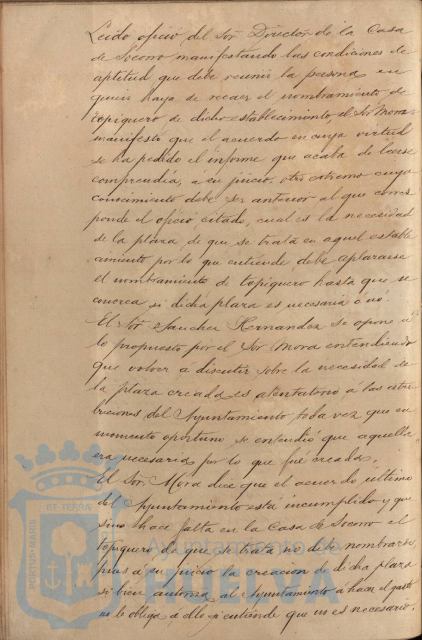 Leido oficio del Sor Director de la Casa
de Socorro manifestando las condiciones de
aptitud que debe reunir la persona en
quien haya de recaer el nombramiento de
topiquero de dicho establecimiento, el Sor Mora
manifestó que el acuerdo en cuya virtud
se ha pedido el informe que acaba de leerse
comprendia, á su juicio, otro extremo cuyo
conocimiento debe ser anterior al que corres
ponde el oficio citado, cual es la necesidad
de la plaza de que se trata en aquel estable
cimiento por lo que entiende debe aplazarse
el nombramiento de topiquero hasta que se
conozca si dicha plaza es necesaria ó nó.
El Sor Sanchez Hernandez se opone á
lo propuesto por el Sor Mora entendiendo
que volver á discutir sobre la necesidad de
la plaza creada es atentatorio á las atri
buciones del Ayuntamiento, toda vez que en
momento oportuno se entendió que aquella
era necesaria, por lo que fué creada.
El Sor Mora dice que el acuerdo último
del Ayuntamiento está incumplido y que
sino hace falta en la Casa de Socorro el
topiquero de que se trata no debe nombrarse,
pues á su juicio la creacion de dicha plaza
si bien autoriza al Ayuntamiento á hacer el gasto
no le obliga á ello si entiende que no es necesario.
PORTUS MARIS
ET TERRÆ
Ayuntamiento de
HUELVA